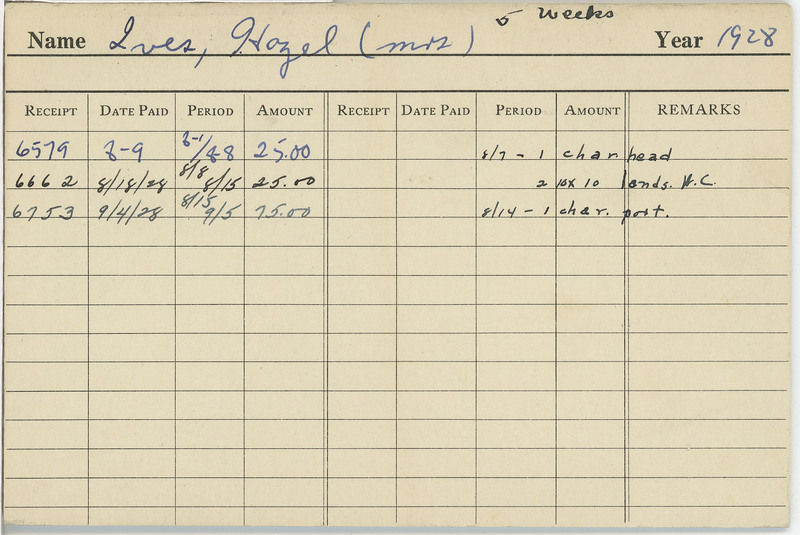 5 weeks
Name Ives, Hazel (mrs) Year 1928
RECEIPT DATE PAID PERIOD AMOUNT RECEIPT DATE PAID PERIOD AMOUNT REMARKS
6579 8-9 8-1/8-8 25.00 8/7 - 1 char head
6662 8/18/28 8/8 8/15 25.00 2 10x10 lands. W.C.
6753 9/4/28 8/15 9/5 75.00 8/14 - 1 char. port.